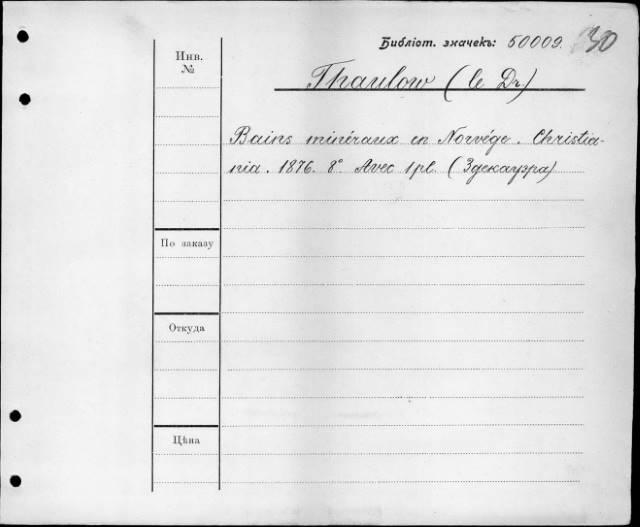 Библіот. значекъ: 50009. 30
Инв.
№
Thaulow (le Dr)
Bains minéraux en Norvége. Christia-
nia. 1876. 8°. Avec 1 pl. (Здекауэра)
По заказу
Откуда
Цѣна